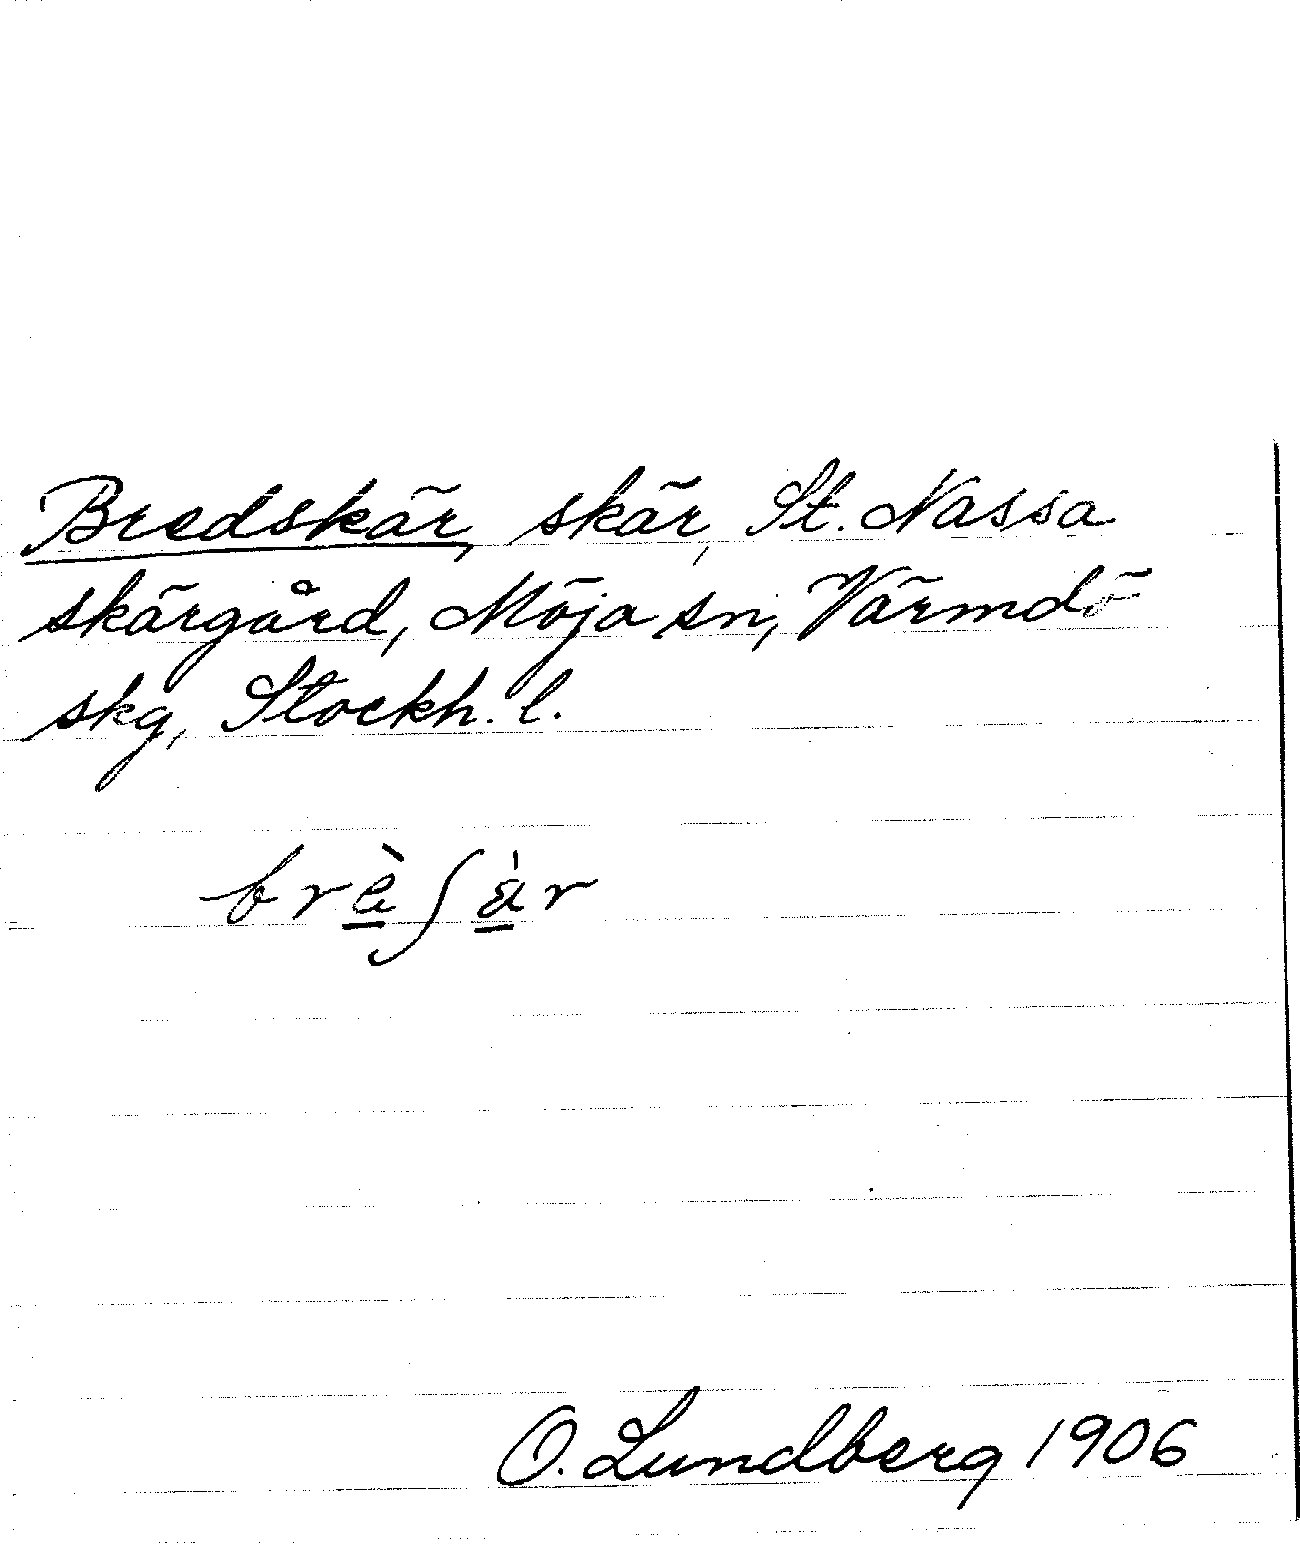 Bredskär, skär, St. Nassa
skärgård, Möja sn, Värmdö
skg, Stockh. l.
brèʃär
O. Lundberg 1906